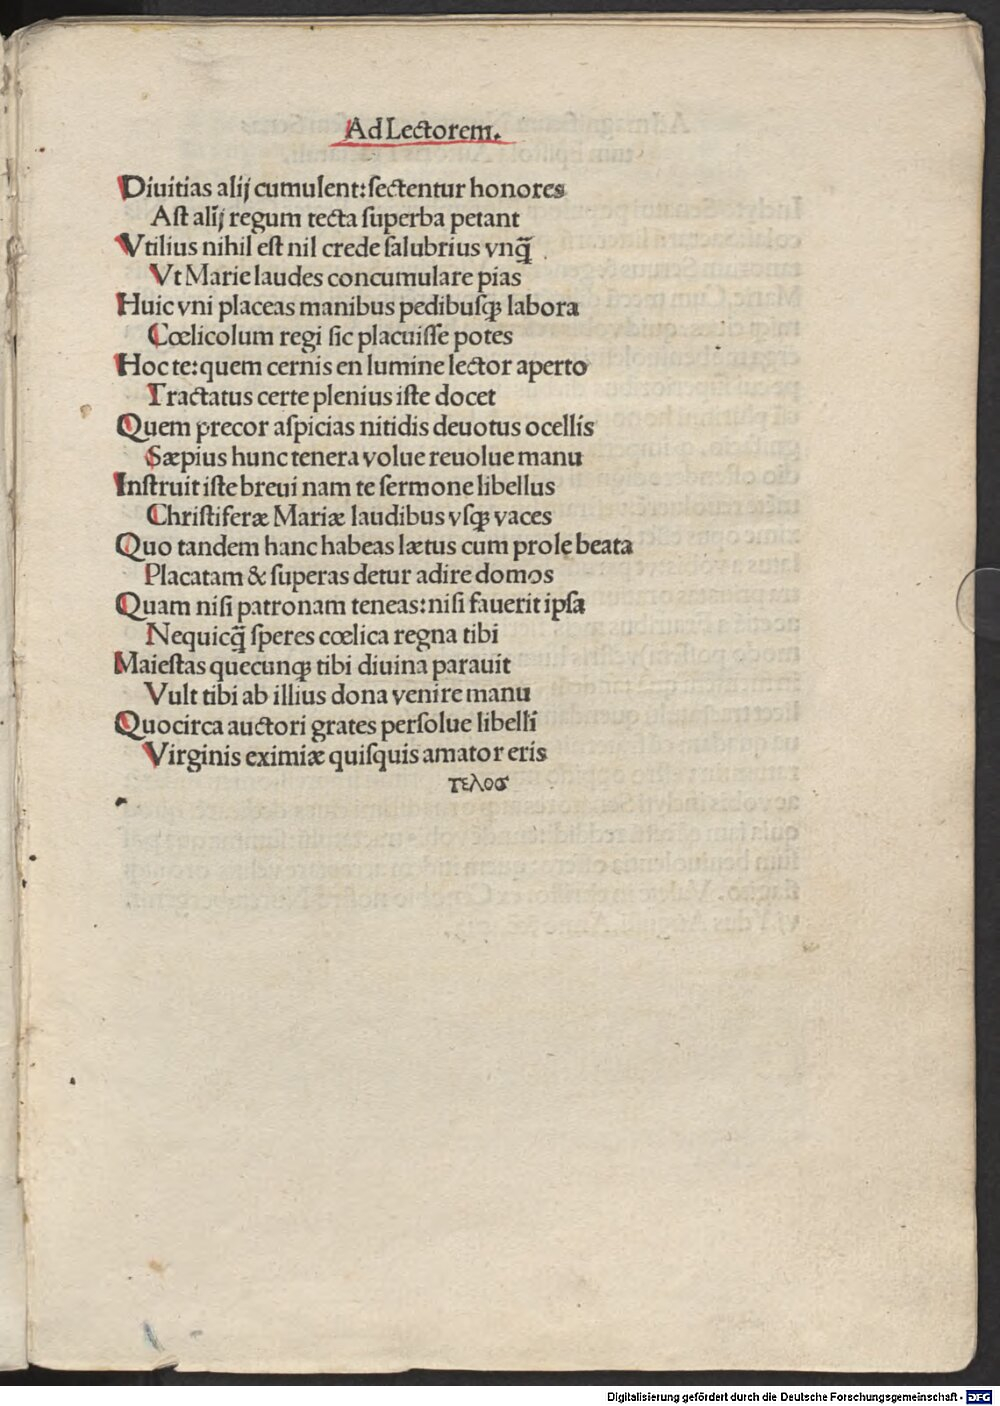 Ad Lectorem.
Diuitias alij cumulent: sectentur honores
Ast alij regum tecta superba petant
Vtilius nihil est nil crede salubrius vnq̄
Vt Marie laudes concumulare pias
Huic vni placeas manibus pedibusqꝫ labora
Cœlicolum regi sic placuisse potes
Hoc te: quem cernis en lumine lector aperto
Tractatus certe plenius iste docet
Quem precor aspicias nitidis deuotus ocellis
Sæpius hunc tenera volue reuolue manu
Instruit iste breui nam te sermone libellus
Christiferæ Mariæ laudibus vsqꝫ vaces
Quo tandem hanc habeas lætus cum prole beata
Placatam & superas detur adire domos
Quam nisi patronam teneas: nisi fauerit ipsa
Nequicq̄ speres cœlica regna tibi
Maiestas quecunqꝫ tibi diuina parauit
Vult tibi ab illius dona venire manu
Quocirca auctori grates persolue libelli
Virginis eximiæ quisquis amator eris
τελος
Digitalisierung gefördert durch die Deutsche Forschungsgemeinschaft - DFG